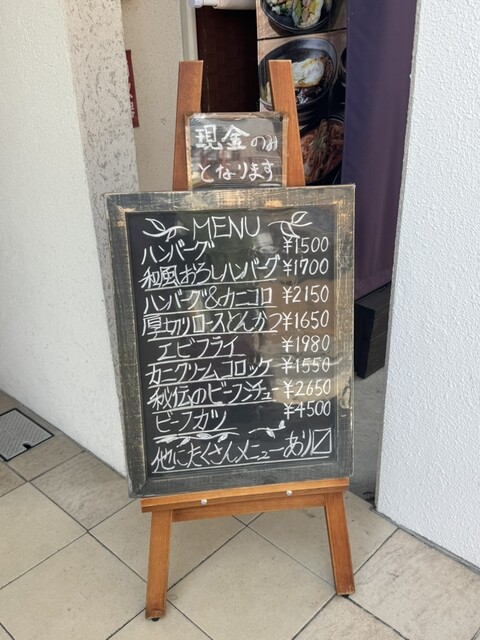 現金のみ
となります
MENU
ハンバーグ ¥1500
和風おろしハンバーグ ¥1700
ハンバーグ&カニコロ ¥2150
厚切りロースとんかつ ¥1650
エビフライ ¥1980
カニクリームコロッケ ¥1550
秘伝のビーフシチュー ¥2650
ビーフカツ ¥4500
他にたくさんメニューあり〼